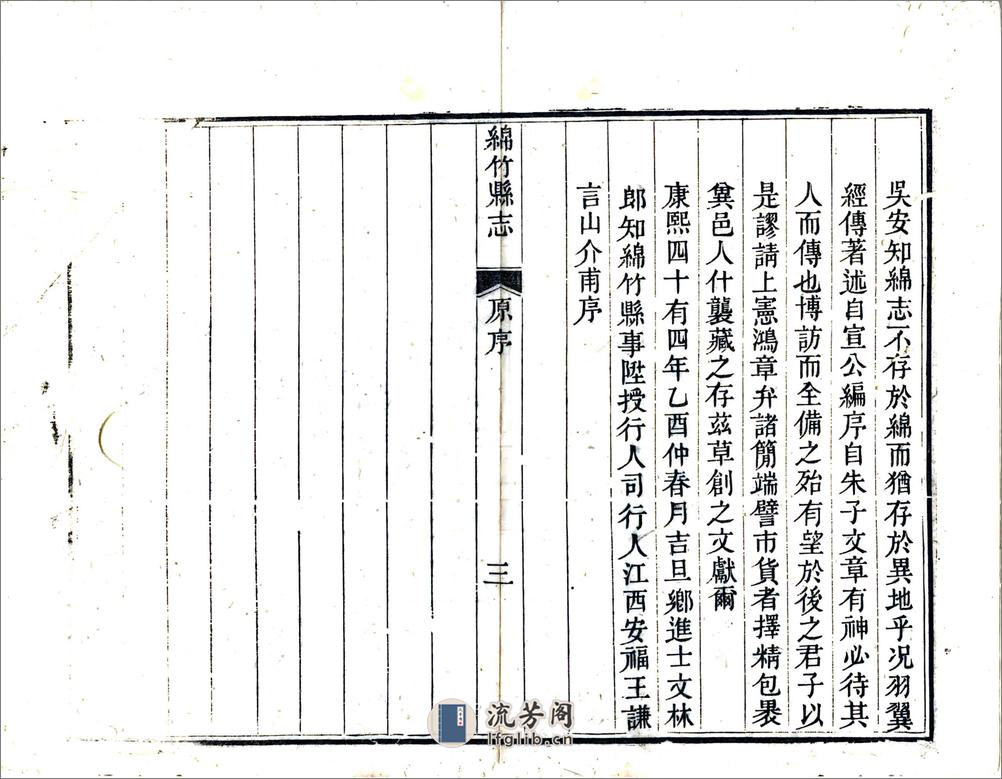 吳安知綿志不存於綿而猶存於異地乎况羽翼
經傳著述自宣公編序自朱子文章有神必待其
人而傳也博訪而全備之殆有望於後之君子以
是謬請上憲鴻章弁諸簡端譬市貨者擇精包褁
冀邑人什襲藏之存兹草創之文獻爾
康熙四十有四年乙酉仲春月吉旦鄉進士文林
郎知綿竹縣事陞授行人司行人江西安福王謙
言山介甫序
綿竹縣志
原序
三
流芳阁
lfglib.cn